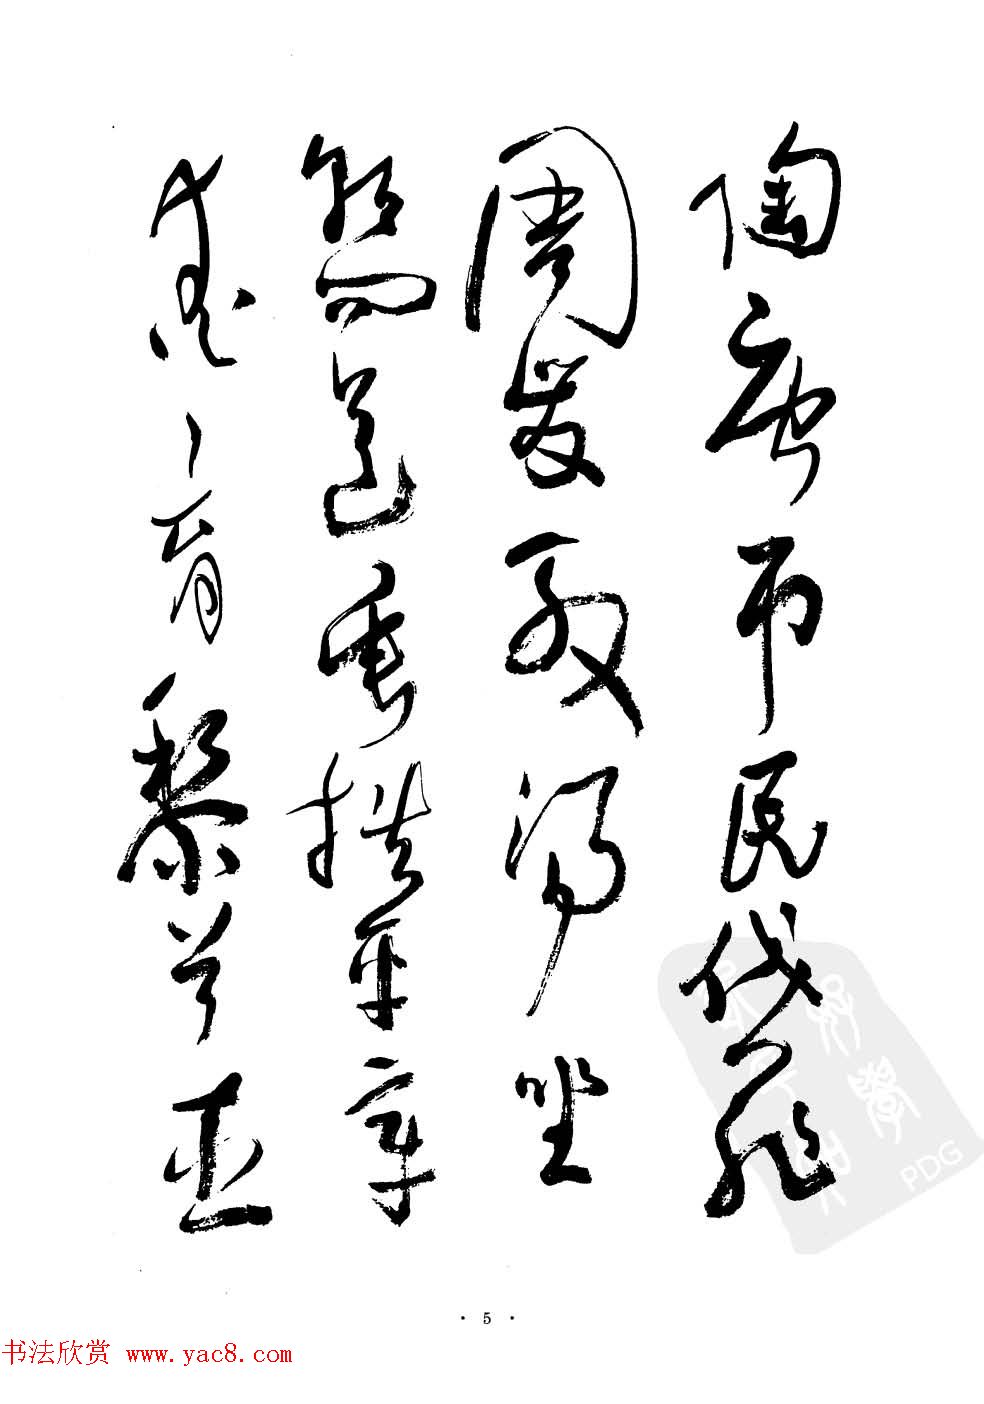 陶唐吊民伐罪
周发殷汤坐
朝问道垂拱平章
爱育黎首臣
· 5 ·
书法欣赏 www.yac8.com
PDG